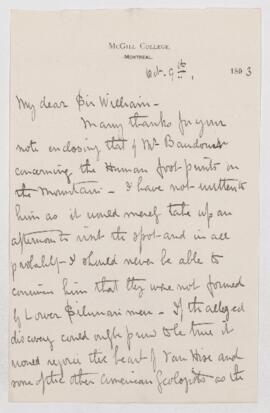 McGill College,
Montreal.
Oct. 9th, 1893
My dear Sir William -
Many thanks for your
note enclosing that of Mr
concerning the Human foot prints on
the Mountain - I have not written to
him as it would merely take up an
afternoon to visit the spot and in all
probably I should never be able to
convince him that they were not formed
by Lower Silurian men - If the alleged
discovery could only be proved to be true it
would rejoice the heart of Van Hise and
some of the other American Geologists as the